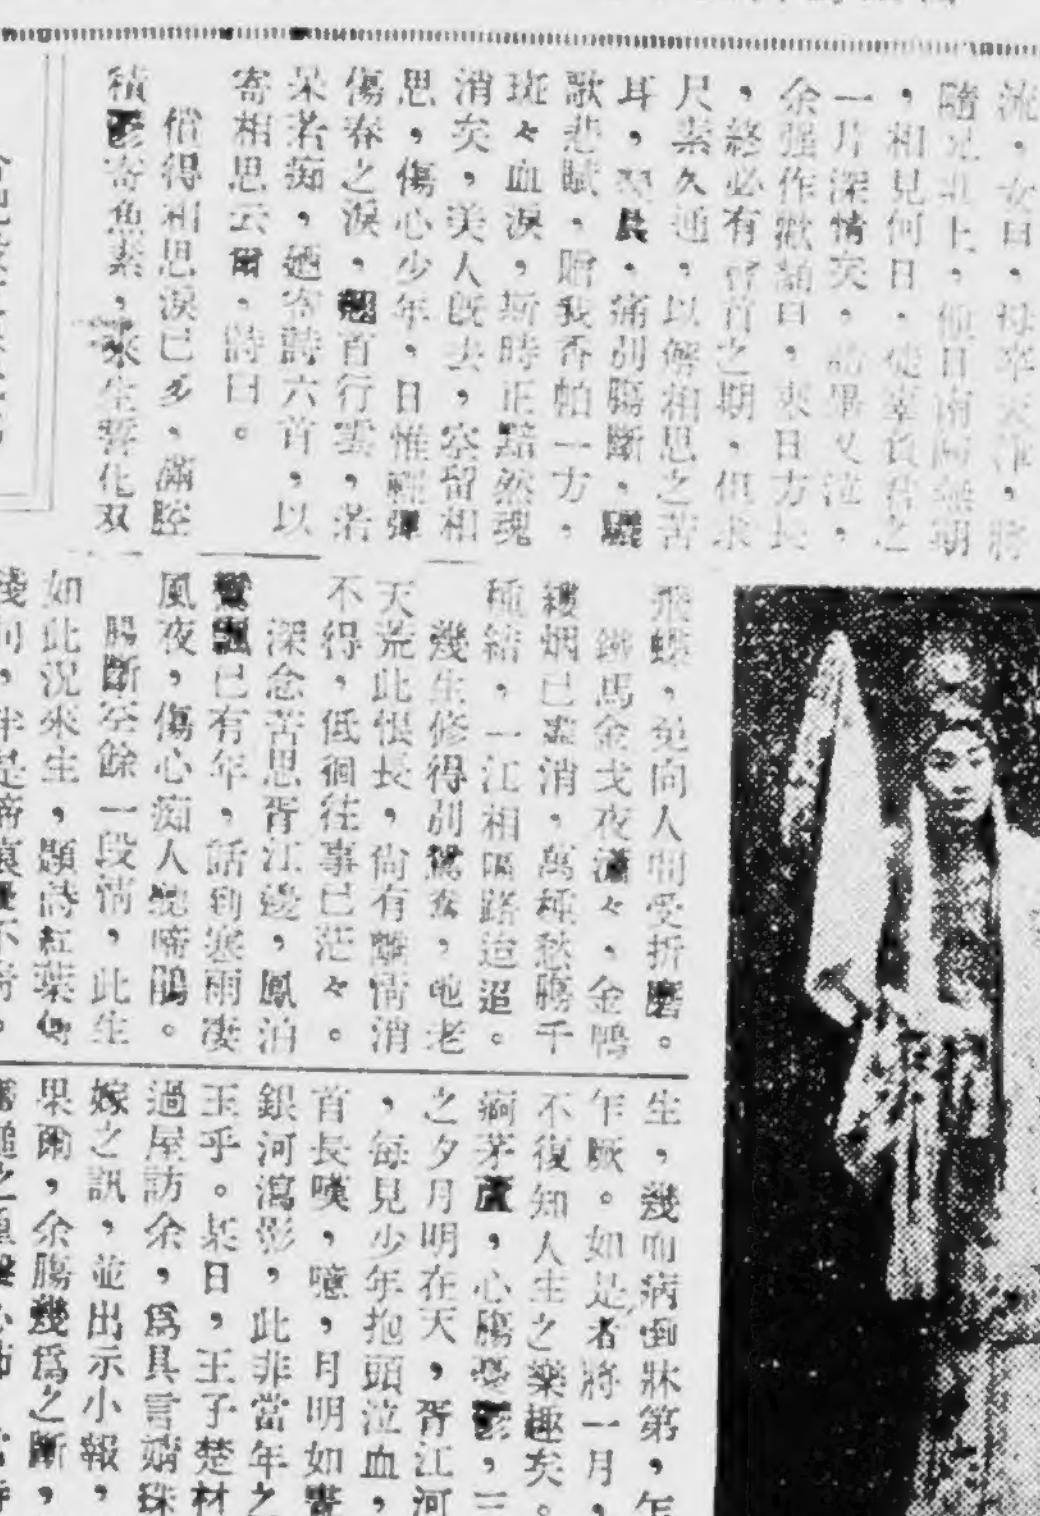 流，女曰，母卒天津，將
隨兄北上，他日南歸無期
，相見何日，徒辜負君之
一片深情矣，語畢又泣，
余强作歡顏曰，來日方長
，終必有會首之期，但求
尺素久通，以解相思之苦
耳，晨，痛別膓斷，驪
歌悲賦，贈我香帕一方，
斑々血淚，斯時正黯然魂
消矣，美人旣去，空留相
思，傷心少年，日惟彈
傷春之淚，翹首行雲，若
呆若痴，廼寄詩六首，以
寄相思云爾，詩曰。
償得相思淚已多，滿腔
積鬱寄魚素，來生誓化双
飛蝶，免向人間受折磨。
鐵馬金戈夜瀟々，金鴨
縷烟已盡消，萬種愁膓千
種結，一江相隔路迢迢。
幾生修得別鴛鴦，地老
天荒此恨長，尙有離情消
不得，低徊往事已茫々。
深念苦思胥江邊，鳳泊
鸞飄已有年，話到寒雨凄
風夜，傷心痴人聽啼鵑。
腸斷空餘一段情，此生
如此況來生，題詩紅葉傳
生，幾而病倒牀第，乍
乍厥。如是者將一月，
不復知人生之樂趣矣。
病茅廬，心膓憂鬱，三
之夕月明在天，胥江河
，每見少年抱頭泣血，
首長嘆，噫，月明如晝
銀河瀉影，此非當年之
玉乎。某日，王子楚材
過屋訪余，爲具言婧珠
嫁之訊，並出示小報，
果爾，余膓幾爲之斷，